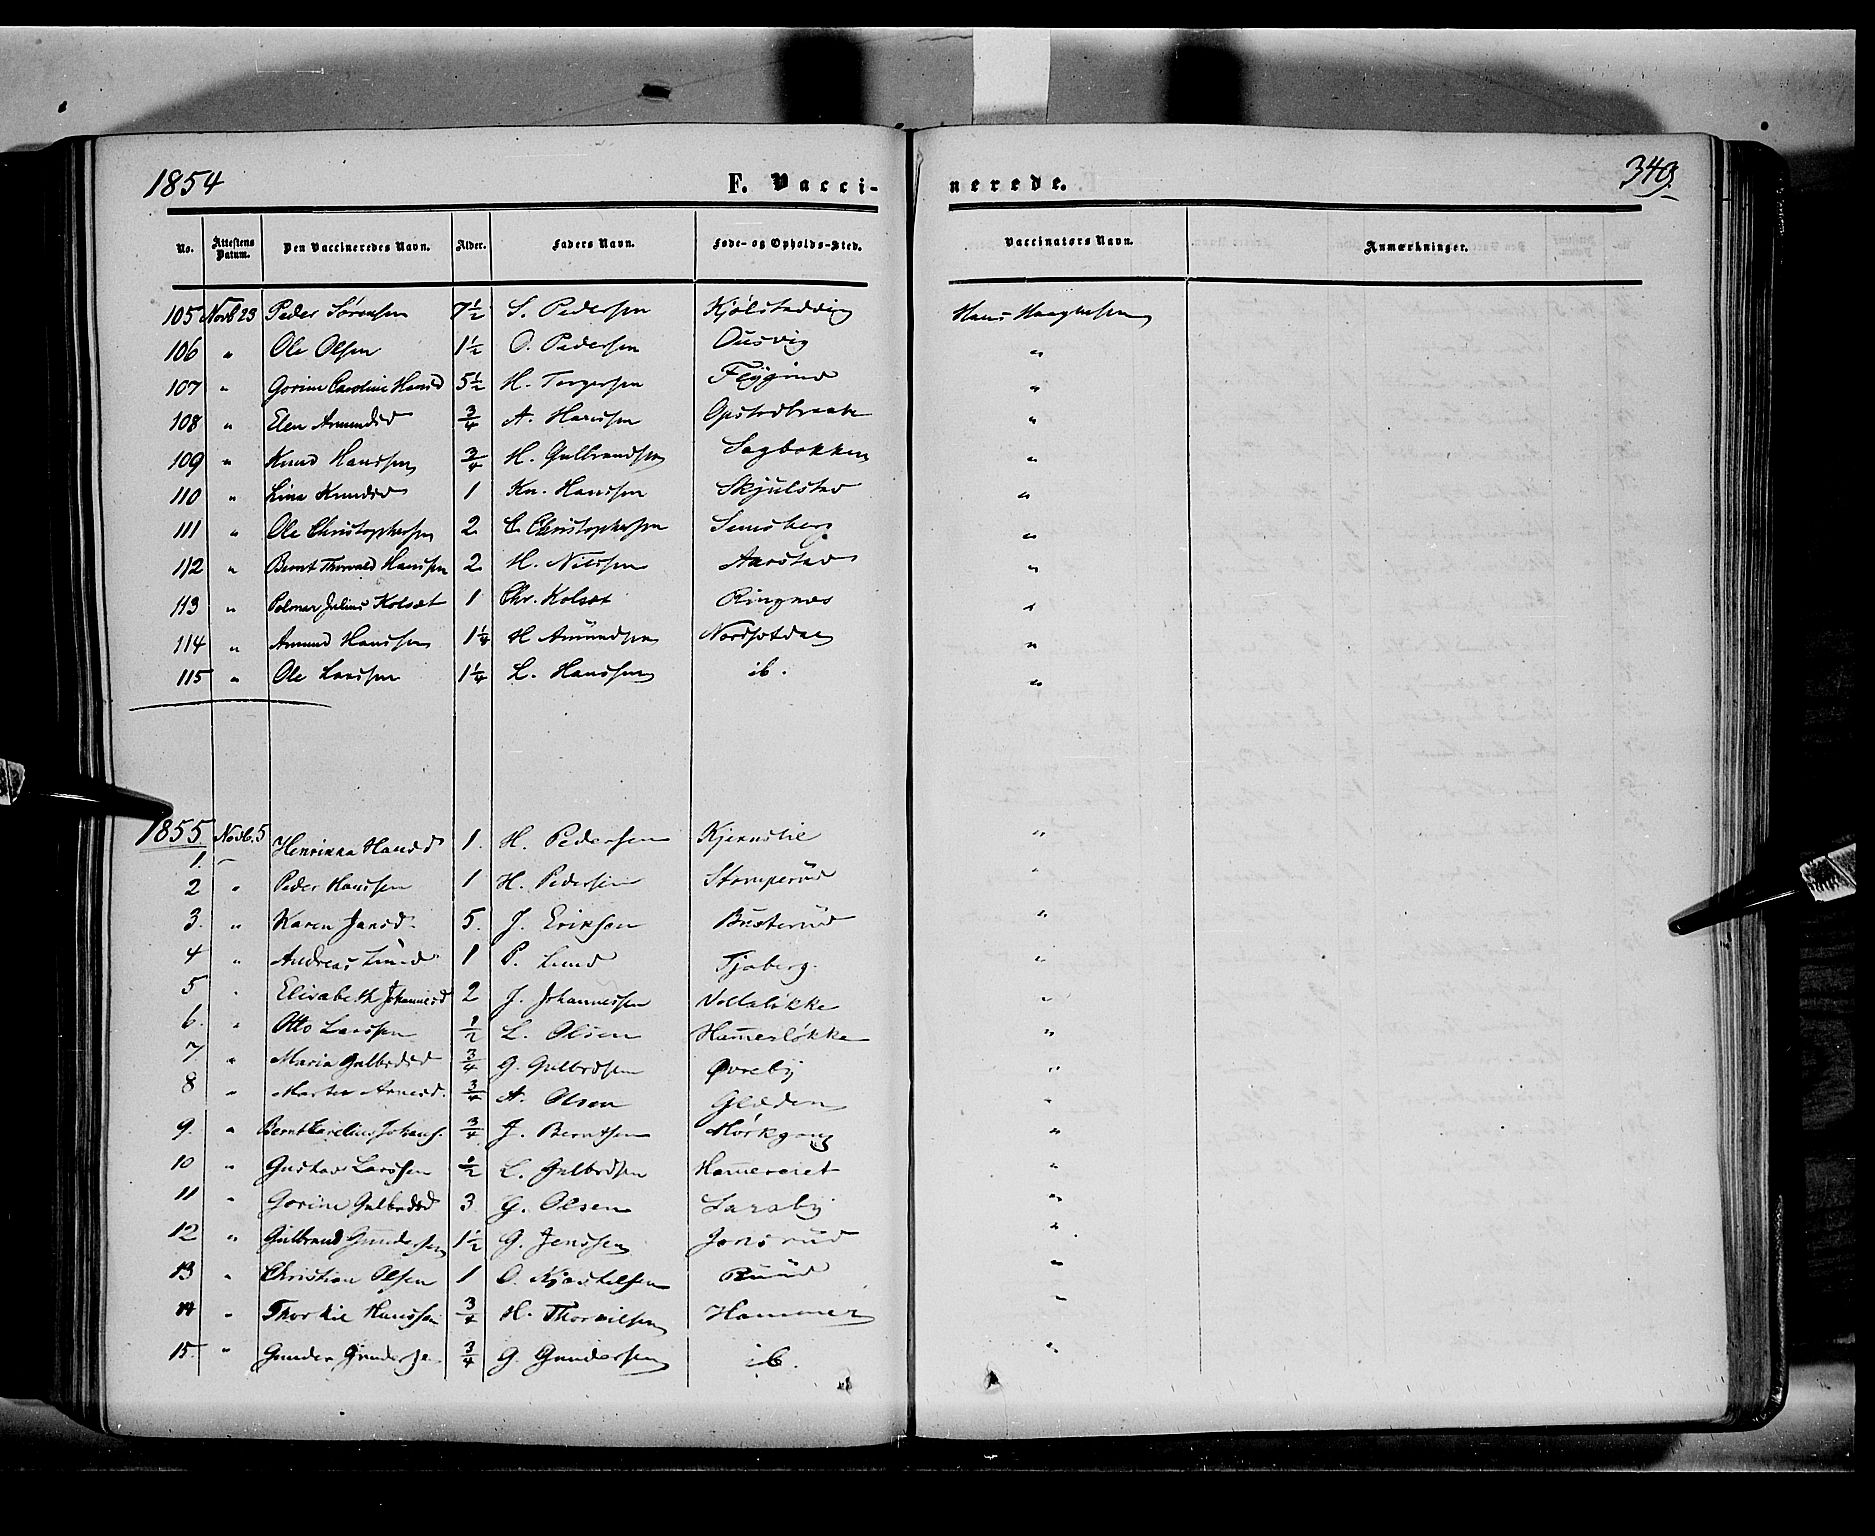 1854 F. Vacci- nerede. 349.
No. Attestens Datum. Den Vaccineredes Navn. Alder. Faders Navn. Føde- og Opholds-Sted. Vaccinators Navn. Anmærkninger.
105 Novb 23 Peder Sørensen 7½ S. Pedersen Kjølstadvig Hans Haagensen
106 " Ole Olsen 1½ O. Pedersen Ousvig "
107 " Gorine Caroline Hansd 5½ H. Torgersen "
108 " Elen Amundsd ¾ A. Hanssen Opstadbraate "
109 " Knud Hanssen ¾ H. Gulbrandsen Sagbakken "
110 " Lina Knudsd 1 Kn. Hanssen Skjulstad "
111 " Ole Christophersen 2 C. Christophersen Semsberg "
112 " Bernt Thorvald Hanssen 2 H. Nilssen Aarstad "
113 " Palmar Julius Kolset 1 Chr. Kolset Ringnæs "
114 " Amund Hanssen 1¼ H Amundsen "
115 " Ole Larssen 1¼ L. Hanssen ib. "
1855 Novb. 5
1. " Henrikka Hansd 1. H. Pedersen Kjernstie "
2 " Peder Hanssen 1 H. Pedersen Stomperud "
3. " Karen Jansd. 5. J. Eriksen Busterud "
4 " Andreas Lund 1 P. Lund Tjaberg. "
5 " Elisabeth Johannesd 2 J. Johannessen "
6. " Otto Larssen ½ L. Olsen Hameløkke "
7. " Maria Gulbrdsd ¾ G. Gulbrdsen Øvreby "
8 " Marten Arnesd. ¾ A. Olsen Glæden "
9. " Bernt Carelius Johans. ¾ J. Berntsen Mørkgong "
10 " Gustav Larssen ½ L. Gulbrdsen Hamereiet "
11 " Gorine Gulbrdsd 3. G. Olsen Larsby "
12 " Gulbrand Gundersen 1½ G. Jenssen Jonsrud "
13 " Christian Olsen 1 O. Kjostelsen Ruud "
14 " Thorkil Hanssen ¾ H. Thorkilsen Hammer "
15. " Gunder Gundersen ¾ G. Gundersen ib. "